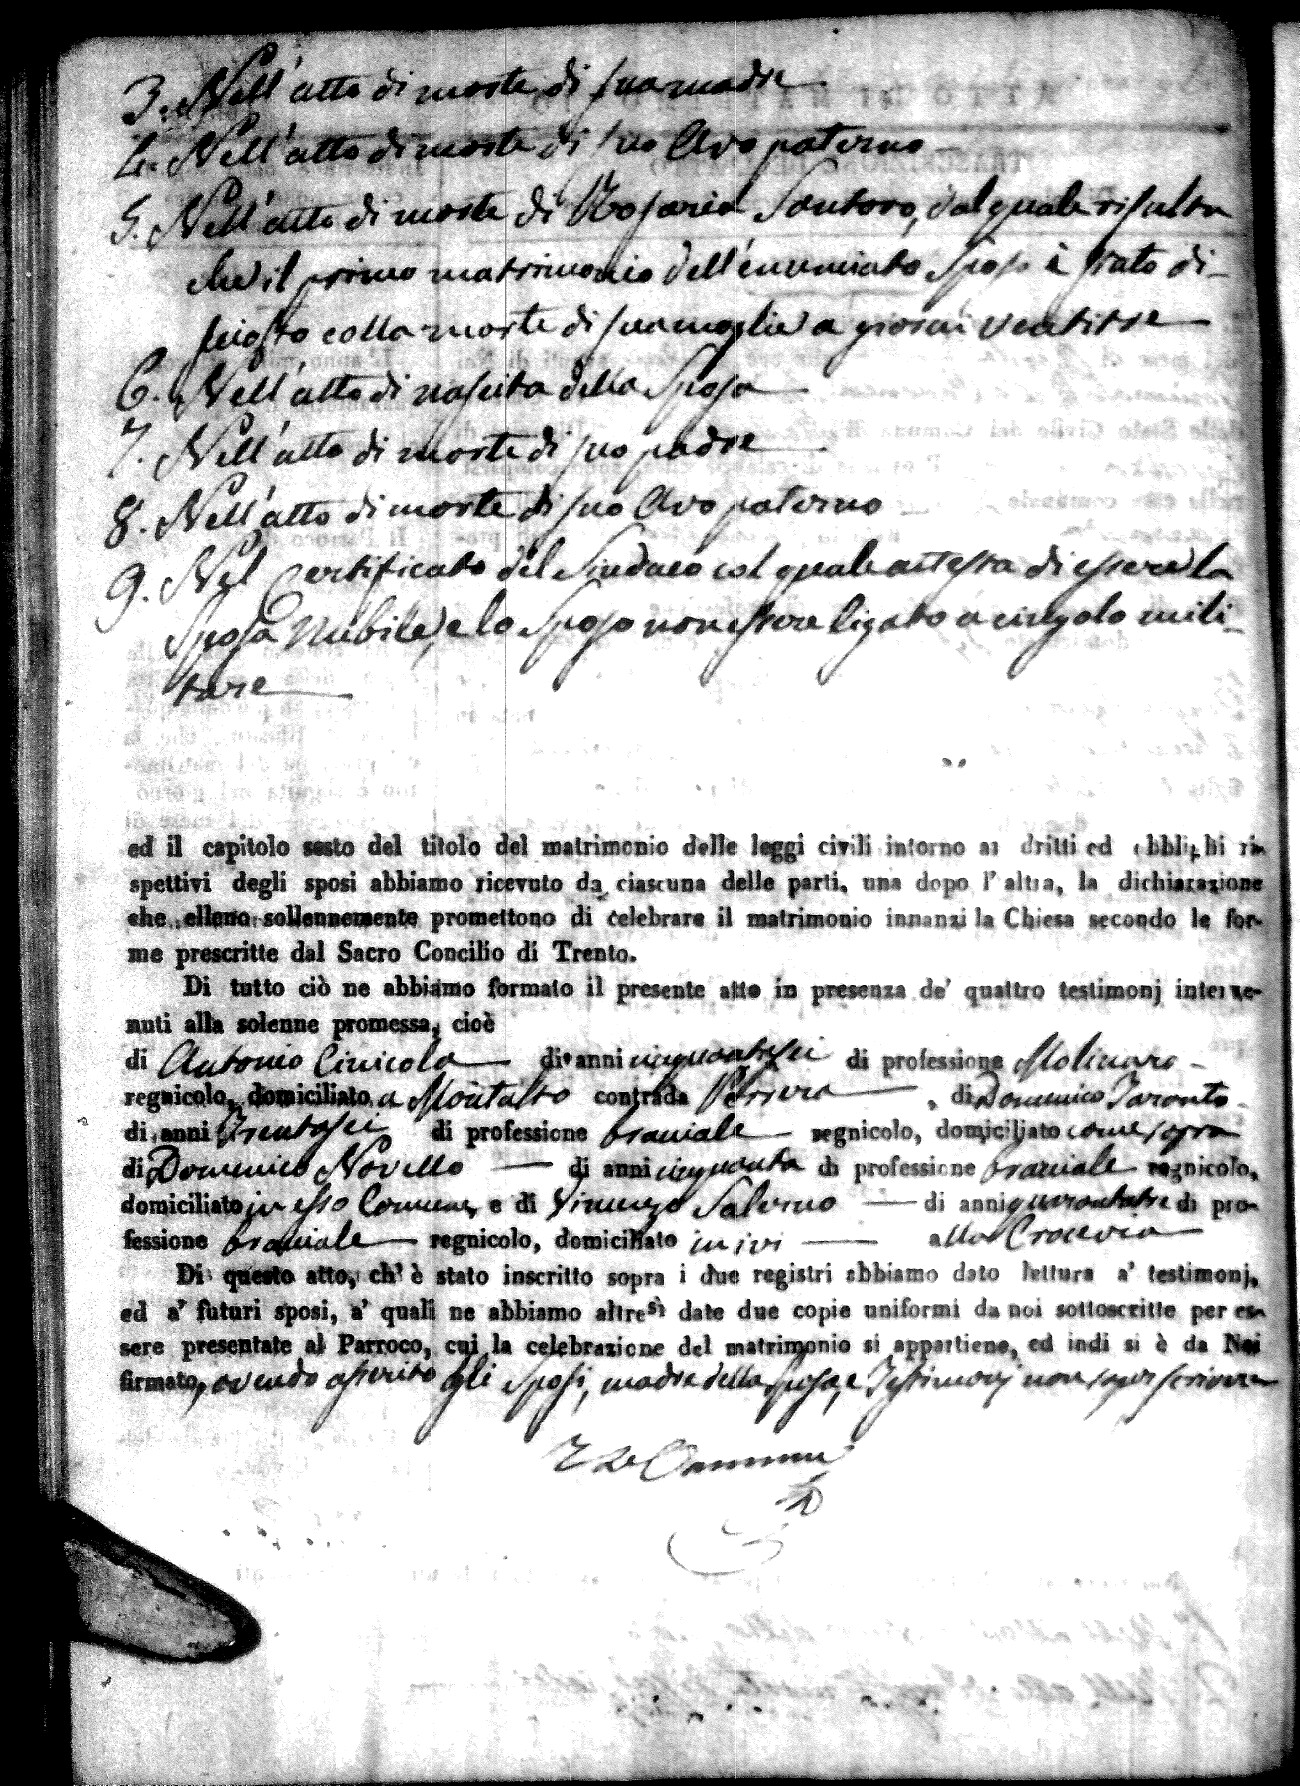 3. Nell'atto di morte di sua madre
4. Nell'atto di morte di suo Avo paterno
5. Nell'atto di morte di Rosaria Santoro, dal quale risulta
che il primo matrimonio dell'enunciato Sposo è stato di-
sciolto colla morte di sua moglie a giorni ventitre
6. Nell'atto di nascita della Sposa
7. Nell'atto di morte di suo padre
8. Nell'atto di morte di suo Avo paterno
9. Nel Certificato del Sindaco col quale attesta di essere la
Sposa nubile, e lo Sposo non essere ligato a cingolo mili-
tare
ed il capitolo sesto del titolo del matrimonio delle leggi civili intorno ai dritti ed obblighi ri-
spettivi degli sposi abbiamo ricevuto da ciascuna delle parti, una dopo l'altra, la dichiarazione
che elleno sollennemente promettono di celebrare il matrimonio innanzi la Chiesa secondo le for-
me prescritte dal Sacro Concilio di Trento.
Di tutto ciò ne abbiamo formato il presente atto in presenza de' quattro testimonj interve-
nuti alla solenne promessa, cioè
di Antonio Civicola di anni cinquantasei di professione Molinaro
regnicolo, domiciliato a Montalto contrada , di Domenico Taranto
di anni Trentasei di professione bracciale regnicolo, domiciliato come sopra
di Domenico Novello di anni cinquanta di professione bracciale regnicolo,
domiciliato in esso Comune, e di Vincenzo Salerno di anni quarantatre di pro-
fessione bracciale regnicolo, domiciliato in ivi alla Crocevia
Di questo atto, ch'è stato inscritto sopra i due registri abbiamo dato lettura a' testimonj,
ed a' futuri sposi, a' quali ne abbiamo altresì date due copie uniformi da noi sottoscritte per es-
sere presentate al Parroco, cui la celebrazione del matrimonio si appartiene, ed indi si è da Noi
firmato, avendo asserito gli Sposi, madre della sposa, e Testimonj non saper scrivere